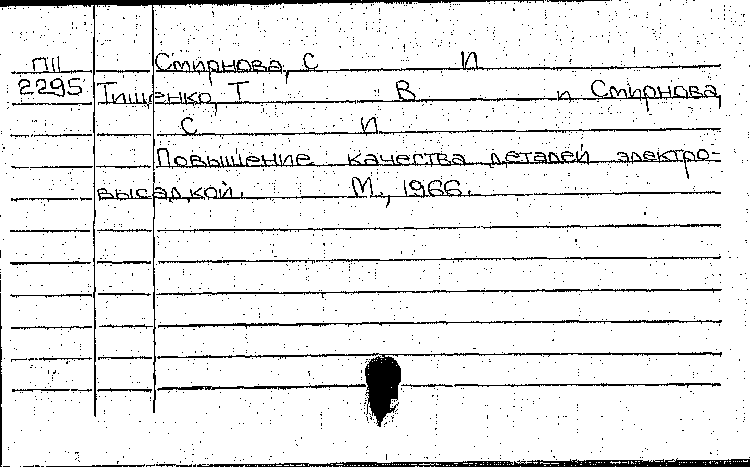 ПII Смирнова, С И
2295 Тищенко, Т В и Смирнова,
С И
Повышение качества деталей электро-
высадкой. М., 1966.